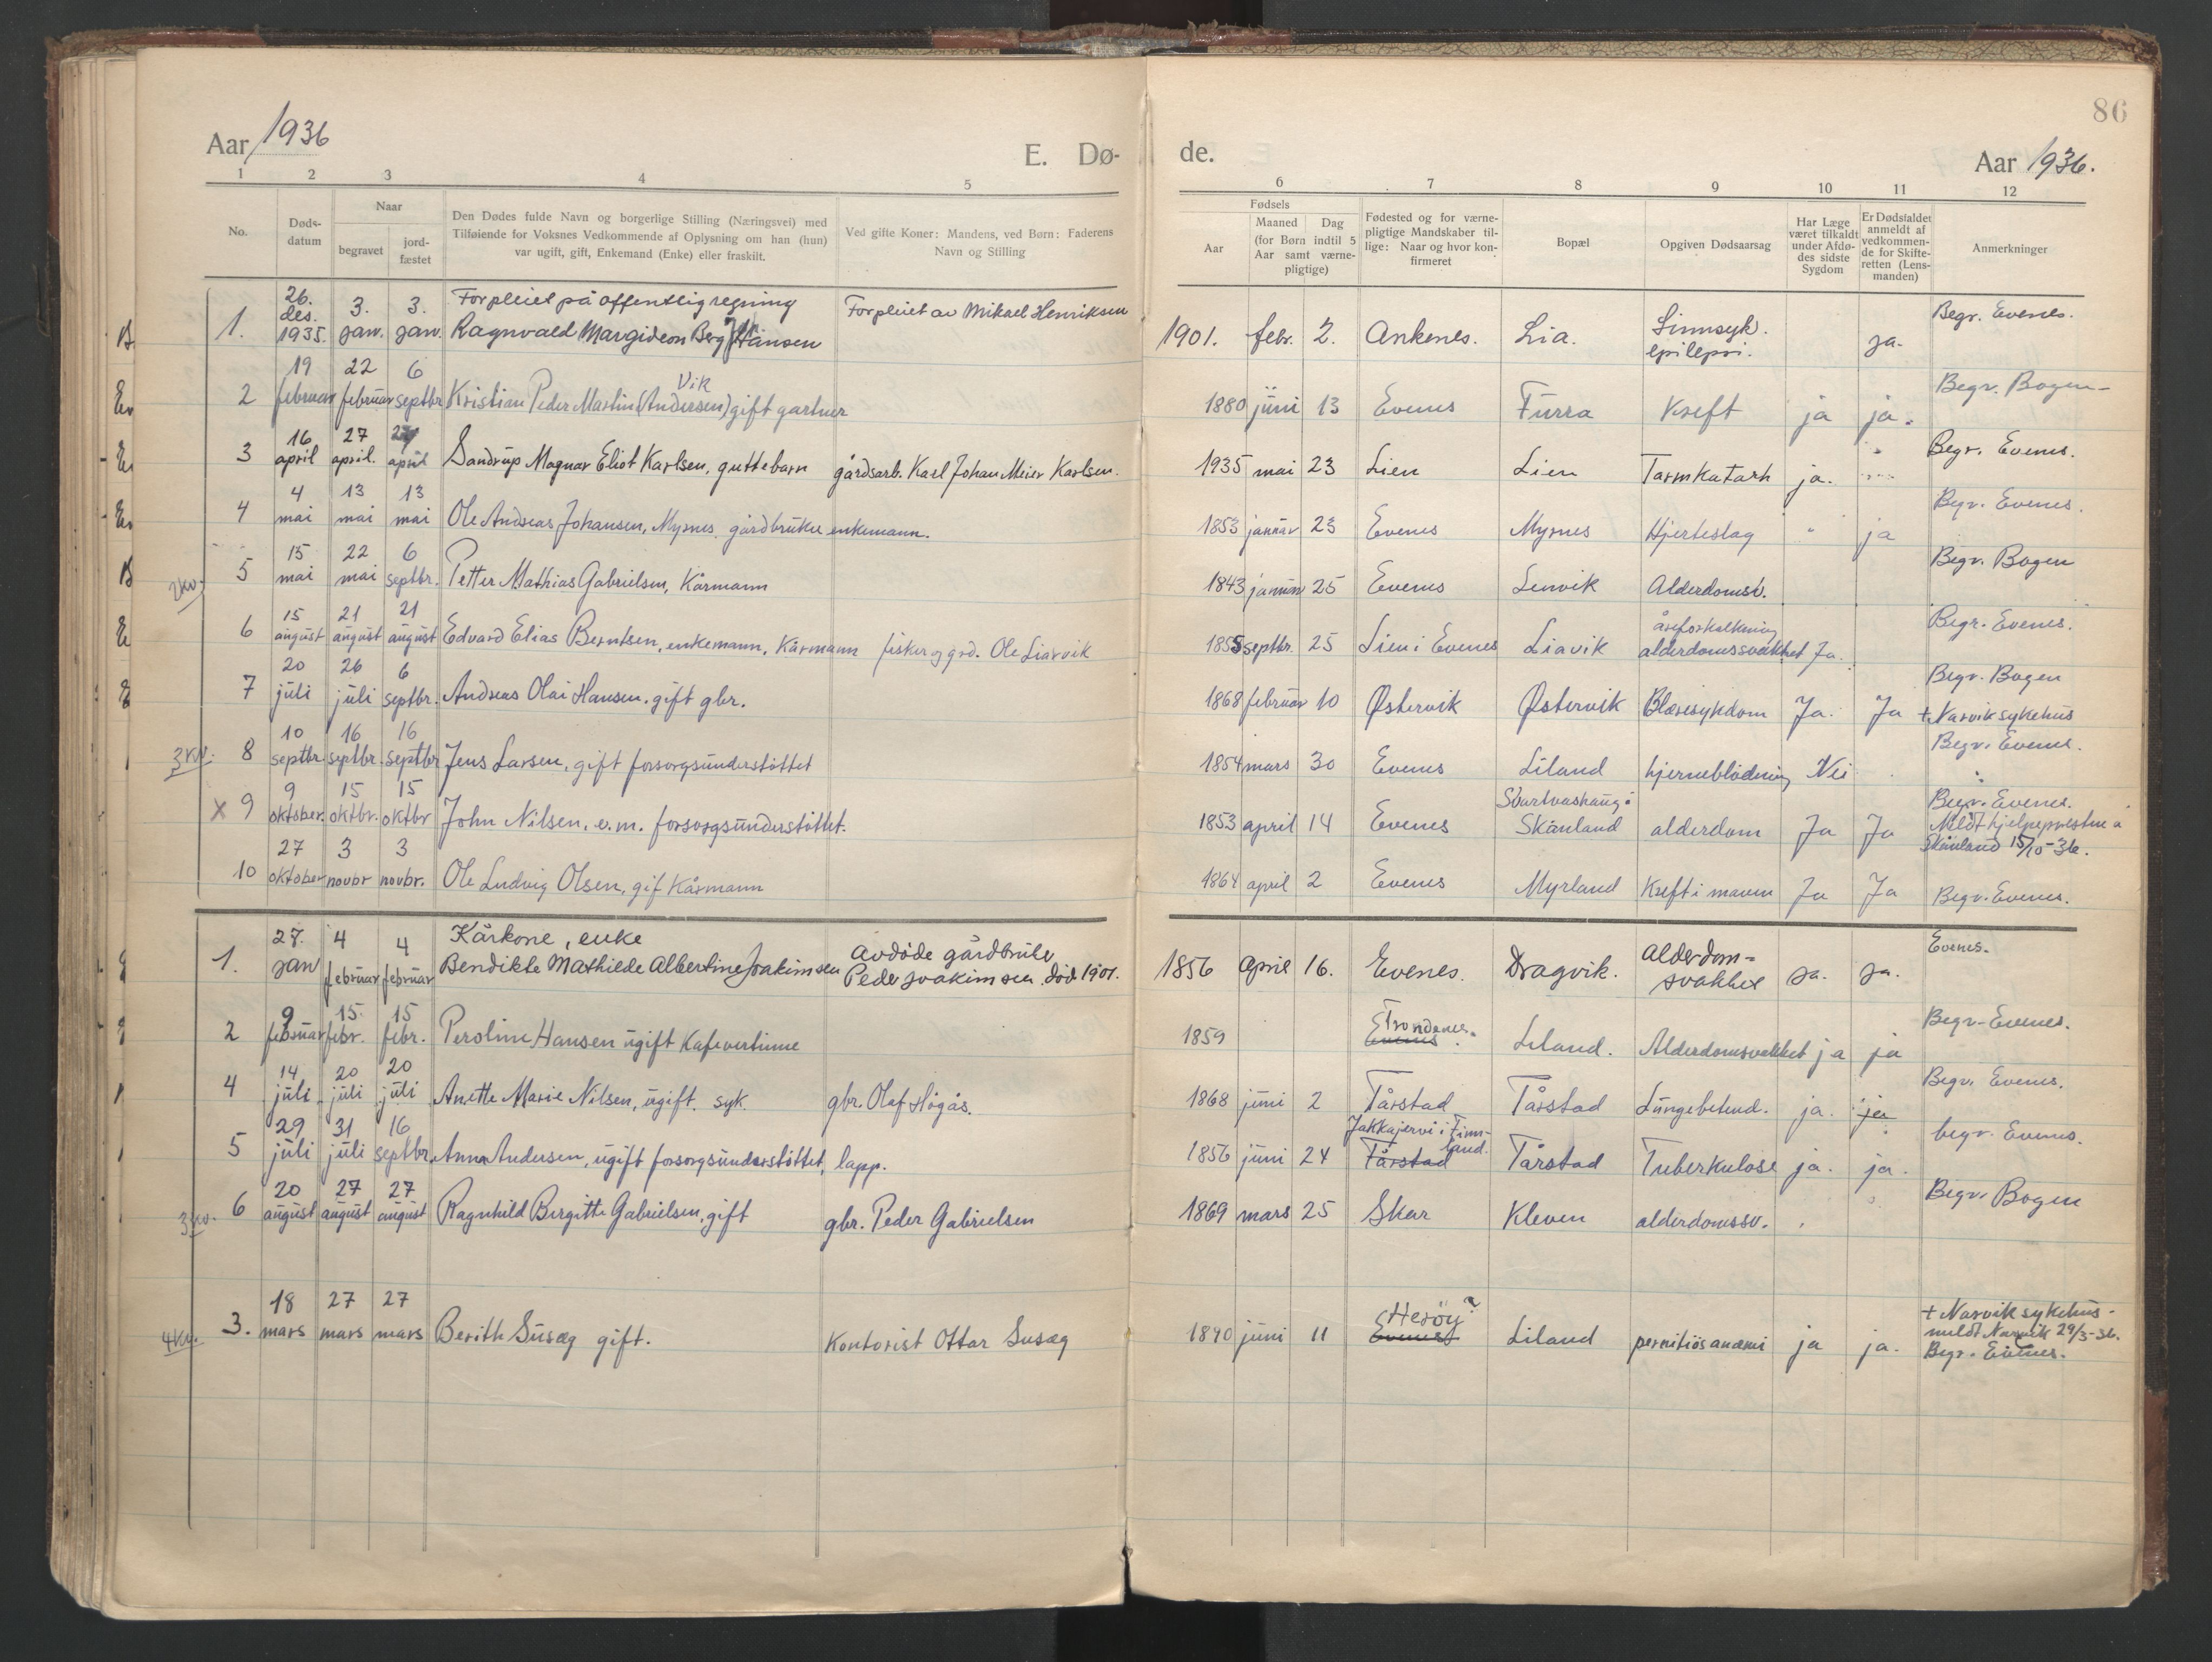 86
Aar 1936
E. Dø-
de.
Aar 1936.
1 2 3 4 5 6 7 8 9 10 11 12
No.
Døds-
datum
Naar
begravet
jord-
fæstet
Den Dødes fulde Navn og borgerlige Stilling (Næringsvei) med
Tilføiende for Voksnes Vedkommende af Oplysning om han (hun)
var ugift, gift, Enkemand (Enke) eller fraskilt.
Ved gifte Koner: Mandens, ved Børn: Faderens
Navn og Stilling
Fødsels
Aar
Maaned Dag
(for Børn indtil 5
Aar samt værne-
pligtige)
Fødested og for værne-
pligtige Mandskaber til-
lige: Naar og hvor kon-
firmeret
Bopæl
Opgiven Dødsaarsag
Har Læge
været tilkaldt
under Afdø-
des sidste
Sygdom
Er Dødsfaldet
anmeldt af
vedkommen-
de for Skifte-
retten (Lens-
manden)
Anmerkninger
26. 3. 3. Forpleiet på offentlig regning Forpleiet av Mikael Henriksen Begr. Evenes.
1. des. 1935. jan. jan. Ragnvald Margideon Berg Hansen 1901. febr. 2. Ankenes. Lia. Sinnsyk. epilepsi. ja.
19 22 6 Vik Begr. Bogen
2 februar februar septbr Kristian Peder Martin (Andersen) gift gartner 1880 juni 13 Evenes Furra Kreft ja ja.
16 27 27 Begr. Evenes.
3 april april. april Sandrup Magnar Eliot Karlsen, guttebarn gårdsarb. Karl Johan Meier Karlsen. 1935 mai 23 Lien Lien Tarmkatarh ja.
4 13 13 Begr. Evenes.
4 mai mai mai Ole Andreas Johansen, Myrnes, gårdbruker enkemann. 1853 januar 23 Evenes Myrnes Hjerteslag " ja
15 22 6 Begr. Bogen
2kv. 5 mai mai septbr. Petter Mathias Gabrielsen, Kårmann 1843 januar 25 Evenes Lenvik Alderdomsv.
15 21 21 åreforkalkning Begr. Evenes.
6 august august august Edvard Elias Berntsen, enkemann, Kårmann fisker og grd. Ole Liavik 1855 septbr. 25 Lien i Evenes Liavik alderdomssvakhet Ja.
20 26 6 Begr. Bogen
7 juli juli septbr. Andreas Olai Hansen. gift gbr. 1868 februar 10 Østervik Østervik Blæresykdom Ja. Ja + Narvik sykehus
10 16 16 Begr. Evenes.
3kv. 8 septbr. septbr. septbr Jens Larsen, gift forsorgsunderstöttet 1854 mars 30 Evenes Liland hjerneblödning Nei
9 15 15 Svartvashaug i Begr. Evenes.
x 9 oktober. oktbr. oktbr John Nilsen, e.m. forsorgsunderstöttet. 1853 april 14 Evenes Skånland alderdom Ja Ja Meldt hjelpeprestne i Skånland 15/10-36.
27 3 3
10 oktober novbr novbr. Ole Ludvig Olsen, gif Kårmann 1864 april 2 Evenes Myrland Kreft i maven Ja Ja Begr. Evenes.
27. 4 4 Kårkone, enke Avdöde gårdbruker Alderdom- Evenes.
1. jan februar februar Bendikte Mathilde Albertine Joakimsen Peder Joakimsen död 1901. 1856 april 16. Evenes. Dragvik. svakhet ja. ja.
9 15. 15 Trondenes. Begr. Evenes.
2 februar febr. febr. Peroline Hansen ugift Kafevertinne 1859 Evenes. Liland. Alderdomsvakhet ja ja
14 20 20 Begr. Evenes.
4 juli juli juli Anette Marie Nilsen, ugift. syk. gbr. Olaf Högås. 1868 juni 2 Tårstad Tårstad Lungebetend. ja. ja
29 31 16 Jukkajervi i Finn- land. begr. Evenes.
5 juli juli septbr. Anna Andersen, ugift forsorgsunderstöttet, lapp. 1856 juni 24 Tårstad Tårstad Tuberkulose ja. ja.
20 27 27 Begr. Bogen
3kv. 6 august august august Ragnhild Birgitte Gabrielsen, gift gbr. Peder Gabrielsen 1869 mars 25 Skar Kleven alderdomssv.
18 27 27 Heröy? + Narvik sykehus-
4kv. 3. mars mars mars Berith Susæg gift. Kontorist Ottar Susæg 1890 juni 11 Evenes Liland pernitiös anæmi ja ja. meldt Narvik 29/3-36.
Begr. Evenes.